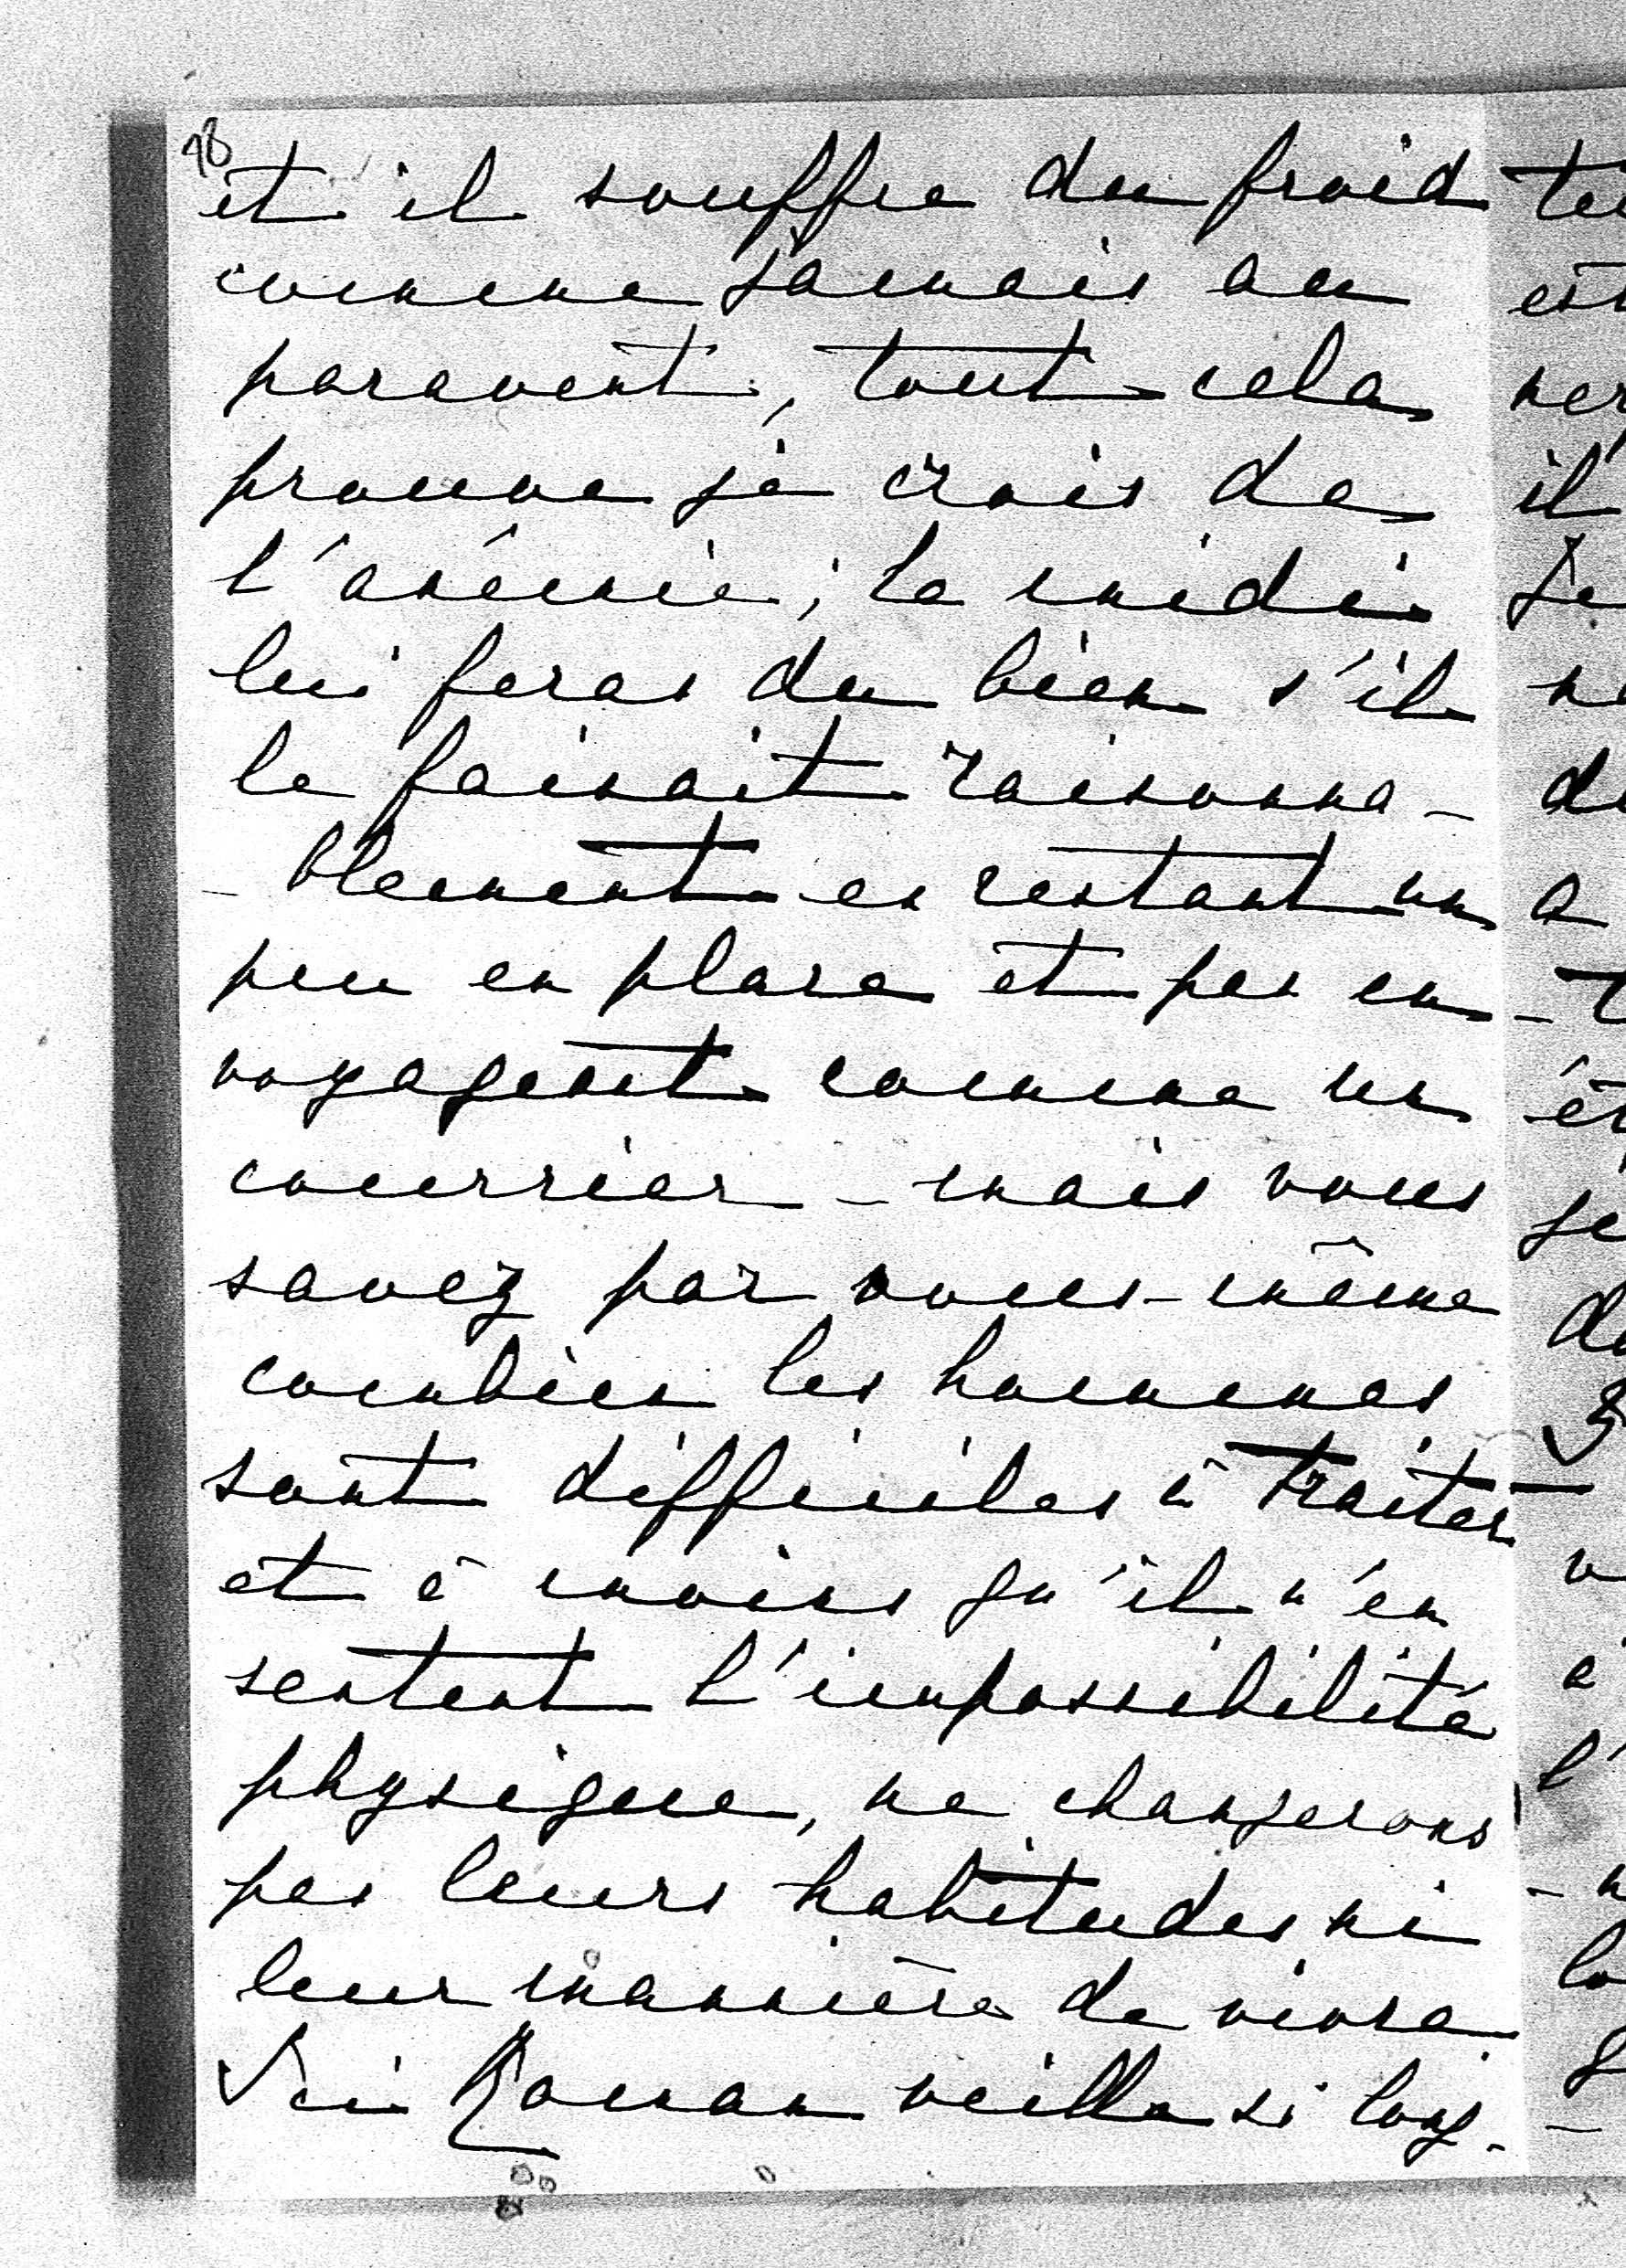 78
et il souffre du froid
comme jamais au
paravent, tout cela
prouve je crois de
l'anémie; le midi
lui feras du bien s'il
le faisait raisonna-
-blement en restant un
peu en place et pas en
voyageant comme un
courrier - mais vous
savez par vous-même
combien les hommes
sont difficiles à traiter
et à moins qu'il n'en
sentent l'impossibilité
physique, ne changerons
pas leurs habitudes ni
leur mannière de vivre
Ici Roman veille si long-